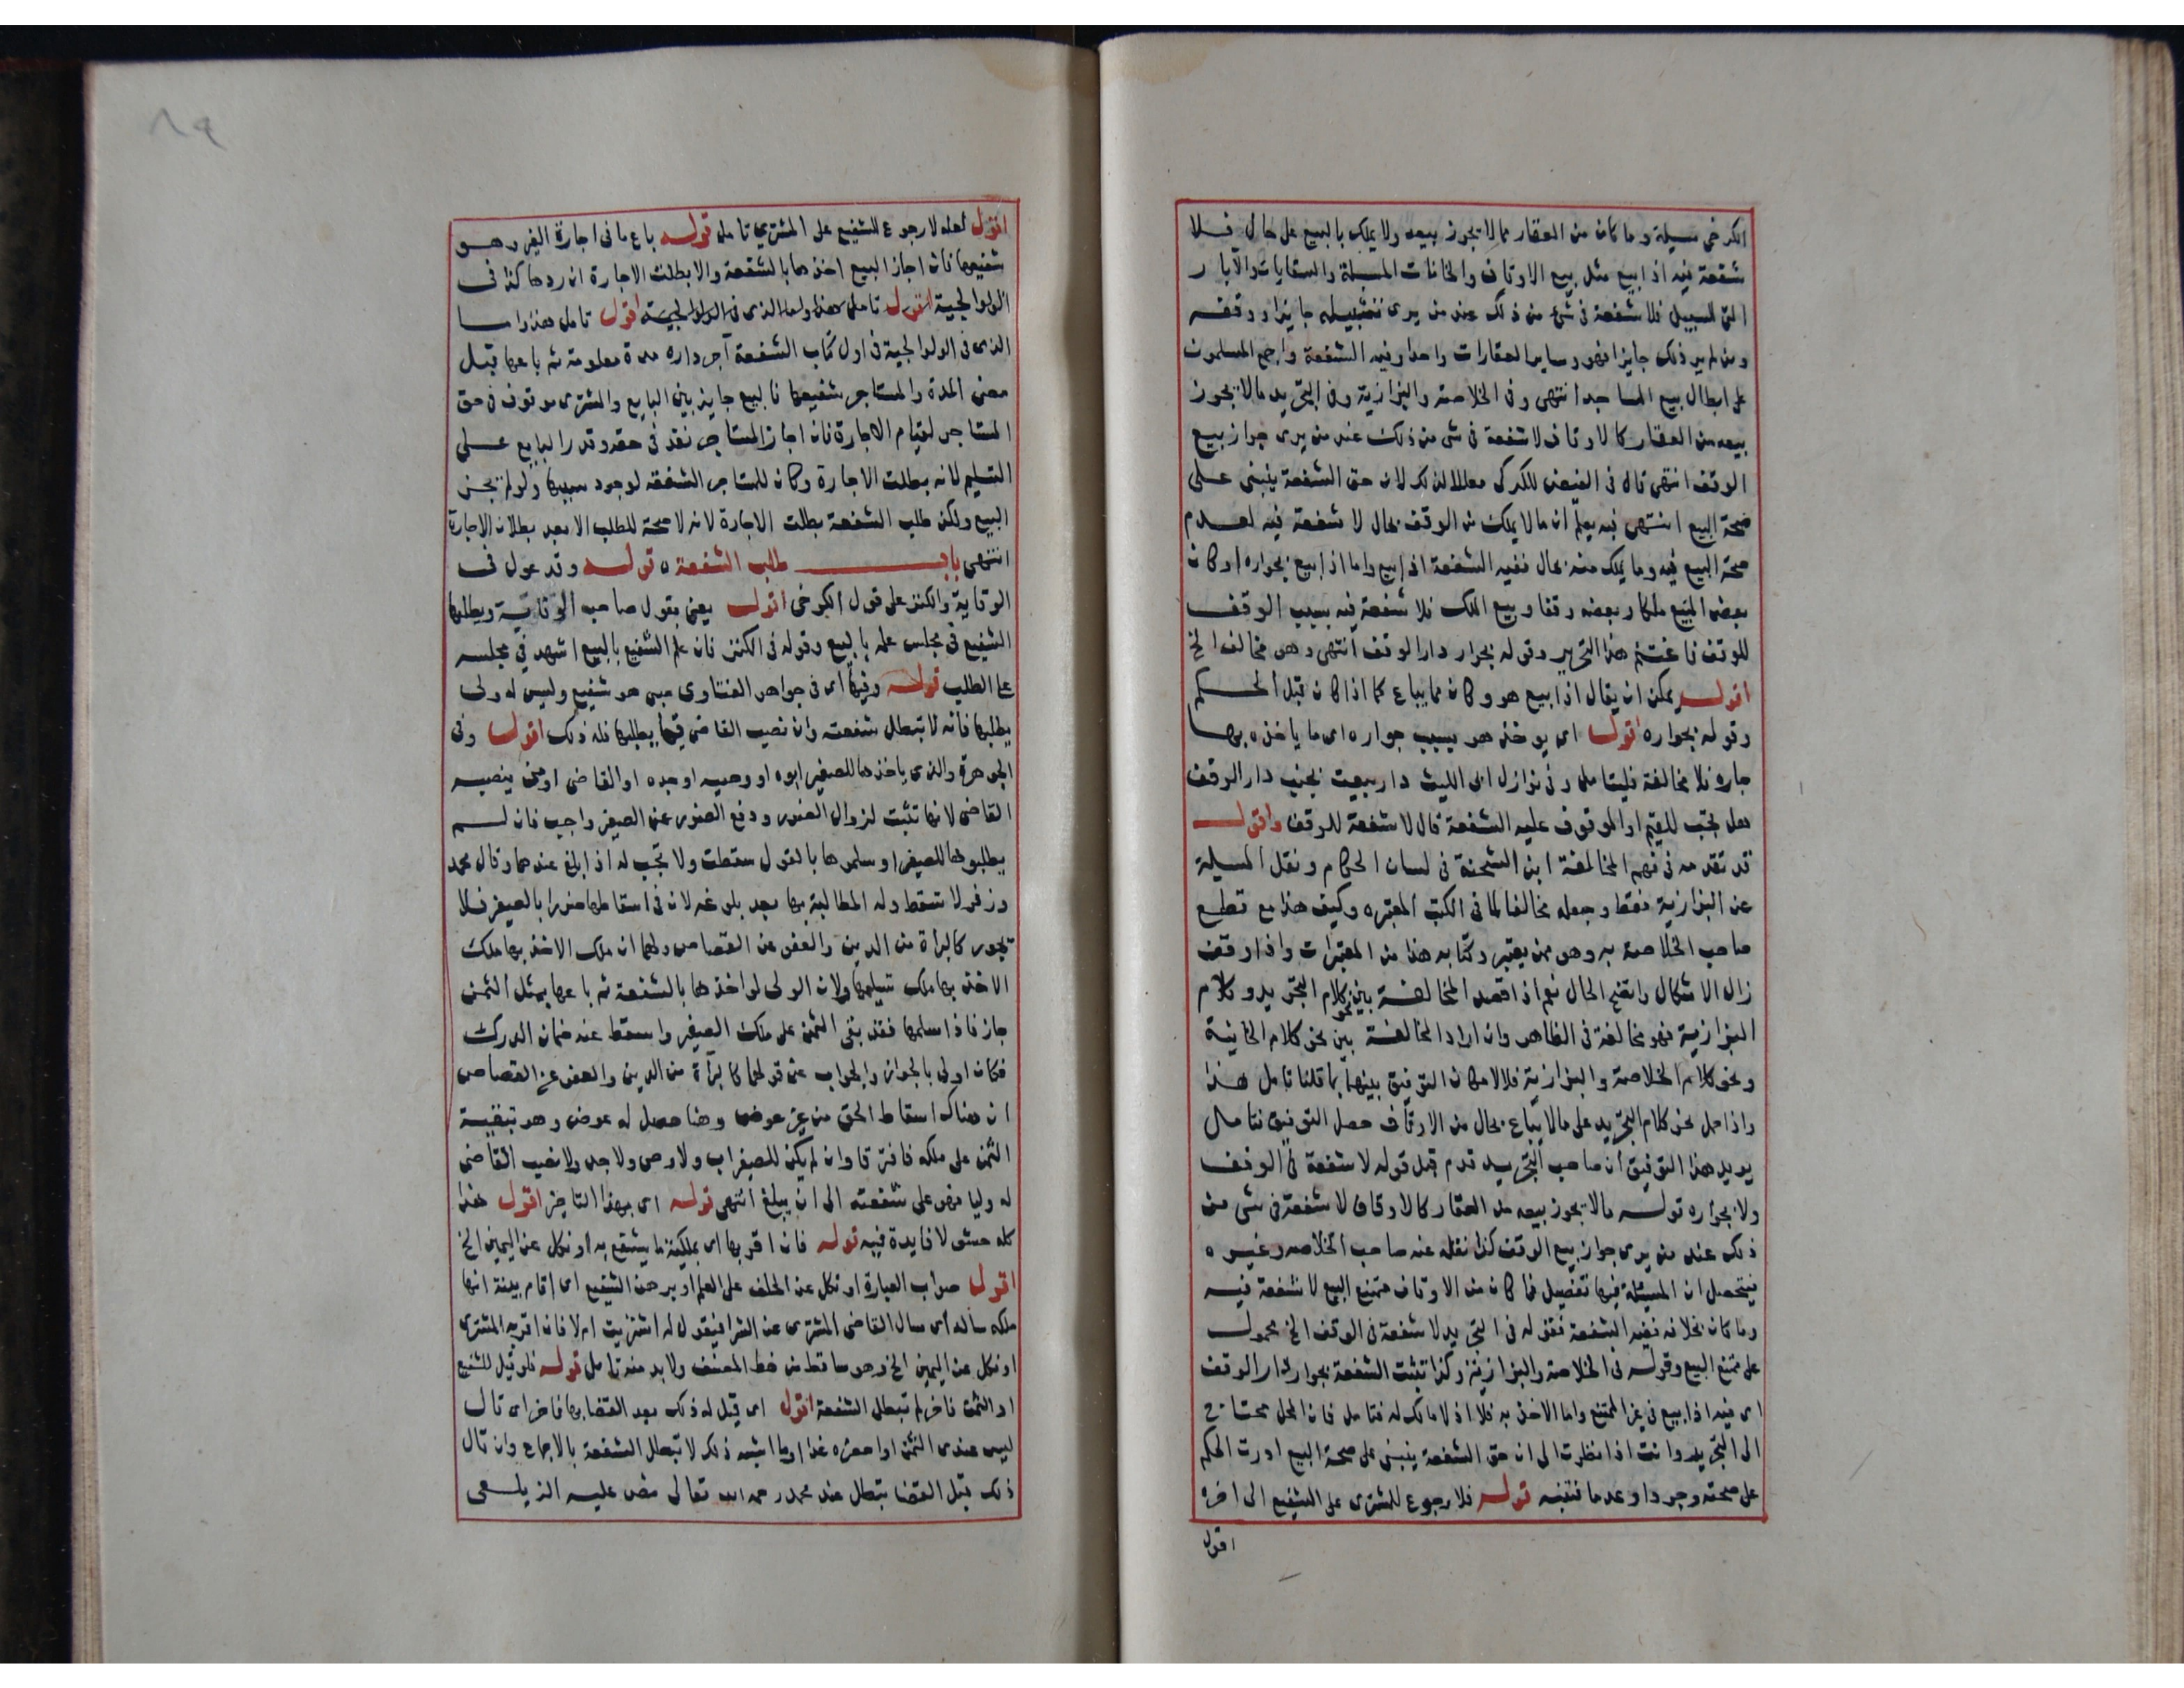 الكرخى مسيلة وما كان من العقار مما لا يجوز بيعه ولا يملك بالبيع على حال فلا
شفعة فيه اذا بيع مثل بيع الاوقاف والخانات المسبلة والسقايات والآبار
التى للسبيل فلا شفعة فى شئ من ذلك عند من يرى تسبيله جايزا ووقفه
ومن لم ير ذلك جايزا فهو وساير العقارات واحدا وفيه الشفعة واجمع المسلمون
على ابطال بيع المساجد انتهى وفى الخلاصة والبزازية وفى التجريد مالا يجوز
بيعه من العقار كالاوقاف لا شفعة فى شى من ذلك عند من يرى جواز بيع
الوقف انتهى قال فى الفيض للكركى معللا لذلك لان حق الشفعة ينبنى على
صحة البيع انتهى فبه يعلم ان مالا يملك من الوقف بحال لا شفعة فيه لعدم
صحة البيع فيه وما يملك منه بحال ففيه الشفعة اذا بيع واما اذا بيع بجواره اوكان
بعض المبيع ملكا وبعضه وقفا وبيع الملك فلا شفعة فيه بسبب الوقف
للوقف فاغتنم هذا التحرير وقوله بجوار دار الوقف انتهى وهو مخالف الخ
اقول يمكن ان يقال اذا بيع هو وكان مما يباع كما اذا كان قبل الحكم
وقوله بجواره اقول اى يوخذ هو بسبب جواره اى ما ياخذه بها
جاره فلا مخالفة فليتامل وفى نوازل ابى الليث دار بيعت بجنب دار الوقف
هل تجب للقيم او الموقوف عليه الشفعة قال لا شفعة للوقف واقول
قد تقدمه فى فهم المخالفة ابن الشحنة فى لسان الحكام ونقل المسيلة
عن البزازية فقط وجعله مخالفا لما فى الكتب المعتبره وكيف هذا مع قطع
صاحب الخلاصة به وهو ممن يعتبر وكتابه هذا من المعتبرات واذا وقف
زال الاشكال واتضح الحال نعم اذا قصد المخالفة بين نحو كلام التجريد وكلام
البزازية فهو مخالفة فى الظاهر وان اراد المخالفة بين نحو كلام الخانية
ونحو كلام الخلاصة والبزازية فلا لامكان التوفيق بينهما بما قلنا تامل هذا
واذا حمل نحو كلام التجريد على مالا يباع بحال من الاوقاف حصل التوفيق فتامل
يويد هذا التوفيق ان صاحب التجريد قدم قبل قوله لا شفعة فى الوقف
ولا بجواره قوله مالا يجوز بيعه من العقار كالاوقاف لا شفعة فى شى من
ذلك عند من يرى جواز بيع الوقف كذا نقله عنه صاحب الخلاصه وغيره
فيتحصل ان المسيلة فيها تفصيل فما كان من الاوقاف ممتنع البيع لا شفعة فيه
وما كان بخلافه ففيه الشفعة فقوله فى التجريد لا شفعة فى الوقف الخ محمول
على ممتنع البيع وقوله فى الخلاصة والبزازية وكذا تثبت الشفعة بجوار دار الوقف
اى فيه اذا بيع فى غير الممتنع واما الاخذ به فلا اذ لا مالك له فتامل فان المحل محتاج
الى التجريد وانت اذا نظرت الى ان حق الشفعة ينبنى على صحة البيع ادرت الحكم
على صحته وجودا وعدما فتنبه قوله فلا رجوع للمشترى على الشفيع الى اخره
اقول
٨٩
اقول لعله لا رجوع للشفيع على المشترى تامله قوله باع ما فى اجارة الغير وهو
شفيعها فان اجاز البيع اخذها بالشفعة والا بطلت الاجارة ان ردها كذا فى
الولوالجية اقول تامل هذا وما الذى فى الولوالجية اقول تامل هذا واما
الذى فى الولوالجية فى اول كتاب الشفعة آجر داره مدة معلومة ثم باعها قبل
مضى المدة والمستاجر شفيعها فالبيع جايز بين البايع والمشترى موقوف فى حق
المستاجر لقيام الاجارة فان اجاز المستاجر نفذ فى حقه وقدر البايع على
التسليم لانه بطلت الاجارة وكان للمستاجر الشفعة لوجود سببها ولو لم يجز
البيع ولكن طلب الشفعة بطلت الاجارة لانه لا صحة للطلب الا بعد بطلان الاجارة
انتهى باب طلب الشفعة ٥ قوله وقد عول فى
الوقاية والكنز على قول الكرخى اقول يعنى بقول صاحب الوقاية ويطلبها
الشفيع فى مجلس علمه بالبيع وقوله فى الكنز فان علم الشفيع بالبيع اشهد فى مجلسه
على الطلب قوله وفيها اى فى جواهر الفتاوى صبى هو شفيع وليس له ولى
يطلبها فانه لا تبطل شفعته وان نصب القاضى قيما يطلبها فله ذلك اقول وفى
الجوهرة والذى ياخذها للصغير ابوه او وصيه او جده او القاضى او من ينصبه
القاضى لانها تثبت لزوال الضرر ودفع الضرر عن الصغير واجب فان لم
يطلبوها للصغير او سلموها بالقول سقطت ولا تجب له اذا بلغ عندهما وقال محمد
وزفر لا تسقط وله المطالبة بها بعد بلوغه لان فى اسقاطها ضررا بالصغير فلا
تجوز كالبرأة من الدين والعفو عن القصاص ولهما ان ملك الاخذ بها ملك
الاخذ بها ملك تسليمها ولان الولى لو اخذها بالشفعة ثم باعها بمثل الثمن
جاز فاذا سلمها فقد بقى الثمن على ملك الصغير واسقط عنه ضمان الدرك
فكان اولى بالجواز والجواب عن قولهما كالبرأة من الدين والعفو عن القصاص
ان هناك اسقاط الحق من غير عوض وهنا حصل له عوض وهو تبقية
الثمن على ملكه فافترقا وان لم يكن للصغير اب ولا وصى ولا جد ولا نصب القاضى
له وليا فهو على شفعته الى ان يبلغ انتهى قوله اى بهذا التاخير اقول هذا
كله حشو لا فايدة فيه قوله فان اقر بها اى بملكية ما يشفع به او نكل عن اليمين الخ
اقول صواب العبارة او نكل عن الحلف على العلم او برهن الشفيع اى اقام بينة انها
ملكه ساله اى سال القاضى المشترى عن الشرا فيقول له اشتريت ام لا فان اقر به المشترى
او نكل عن اليمين الخ وهو ساقط من خط المصنف ولا بد منه تامل قوله فلو قيل للشفيع
ادّ الثمن فاخر لم تبطل الشفعة اقول اى قيل له ذلك بعد القضا بها فاخر اى قال
ليس عندى الثمن او احضره غدا او ما اشبه ذلك لا تبطل الشفعة بالاجماع وان قال
ذلك قبل القضا تبطل عند محمد رحمه الله تعالى نص عليه الزيلعى